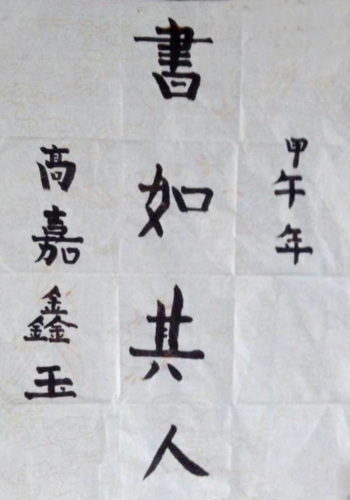 甲午年
書如其人
高嘉鑫玉